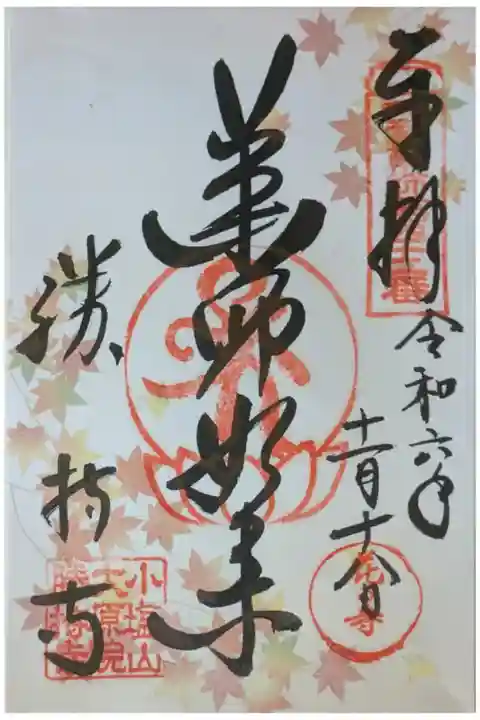 奉拝
令和六年
十一月十八日
薬師如来
勝持寺
小塩山
大原院
勝持寺